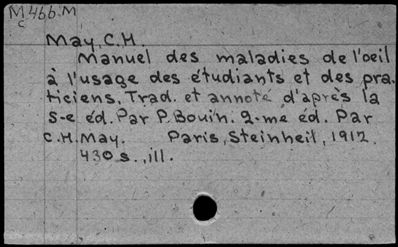 M466.M
c
May, C.H.
Manuel des maladies de l'oeil
à l'usage des étudiants et des pra-
ticiens. Trad. et annoté d'après la
5-e éd. Par P. Bouin. 2-me éd. Par
C.H. May. Paris, Steinheil, 1912.
430 s., ill.